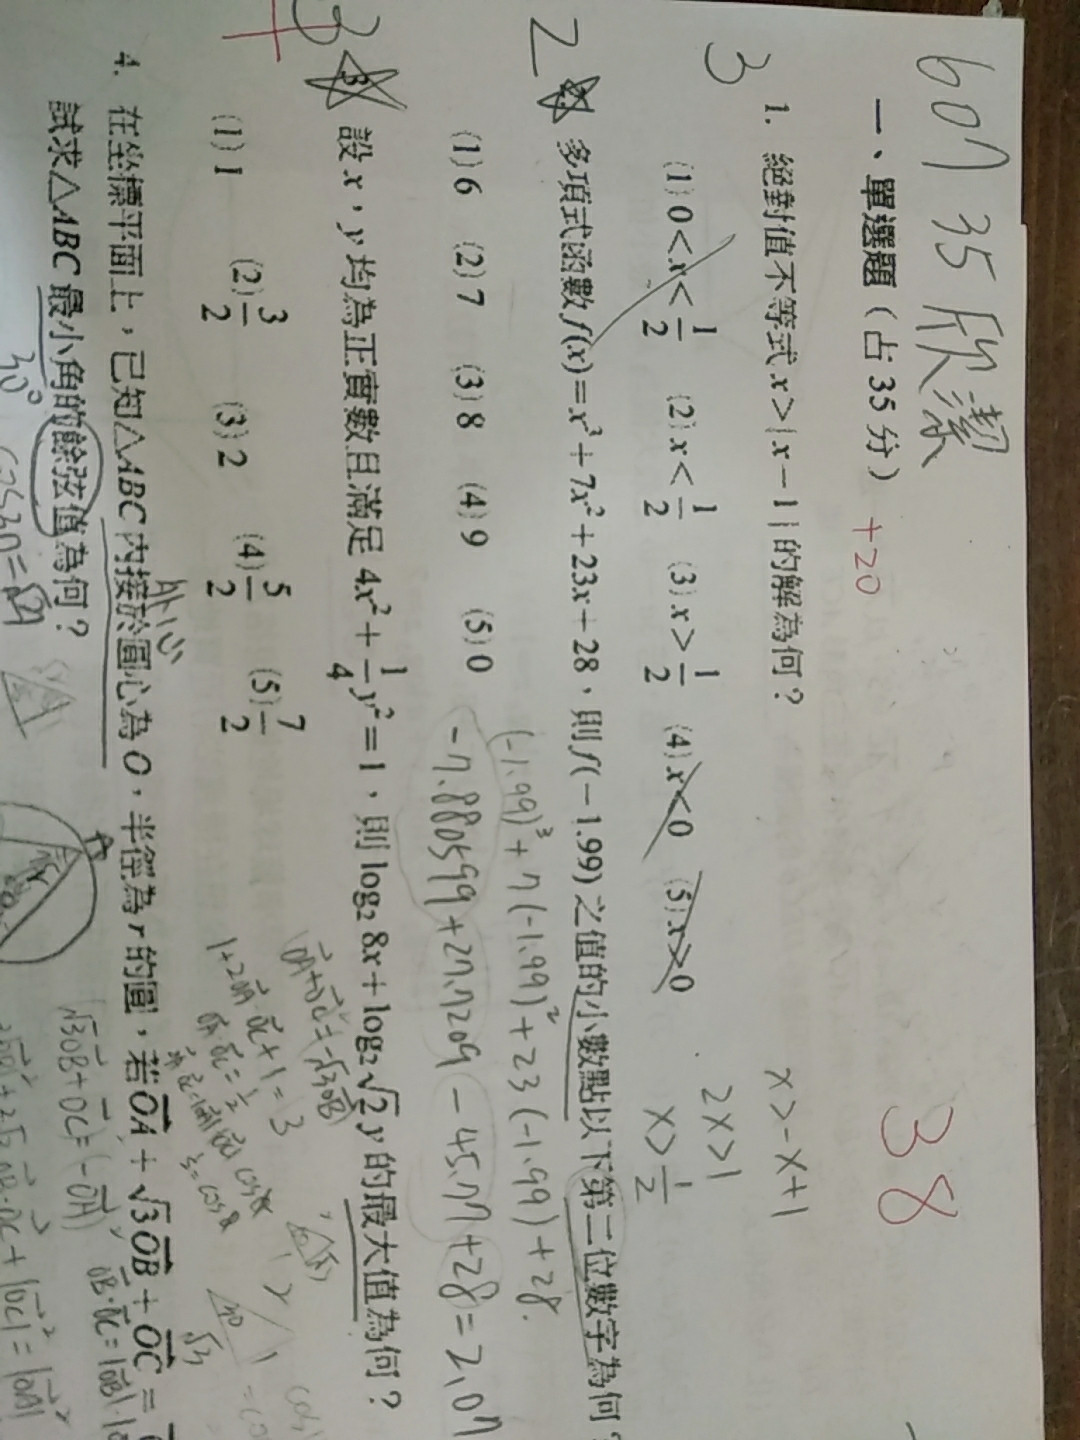 607 35 欣潔
38
一、單選題（占 35 分） +20
3 1. 絕對值不等式 x>|x−1| 的解為何？
x>-x+1
2x>1
x>1/2
(1) 0<x<1/2 (2) x<1/2 (3) x>1/2 (4) x<0 (5) x>0
2 2. 多項式函數 f(x)=x³+7x²+23x+28，則 f(−1.99) 之值的小數點以下第二位數字為何？
(-1.99)³+7(-1.99)²+23(-1.99)+28.
(1) 6 (2) 7 (3) 8 (4) 9 (5) 0
-7.880599+27.7209-45.77+28=2.07
3 3. 設 x，y 均為正實數且滿足 4x²+1/4y²=1，則 log₂8x+log₂√2y 的最大值為何？
4
(1) 1 (2) 3/2 (3) 2 (4) 5/2 (5) 7/2
1+2OA·OC+1=3
外心
4. 在坐標平面上，已知△ABC 內接於圓心為 O，半徑為 r 的圓，若 OA+√3OB+OC=
試求△ABC 最小角的餘弦值為何？
√3OB+OC=(-OA)
30°